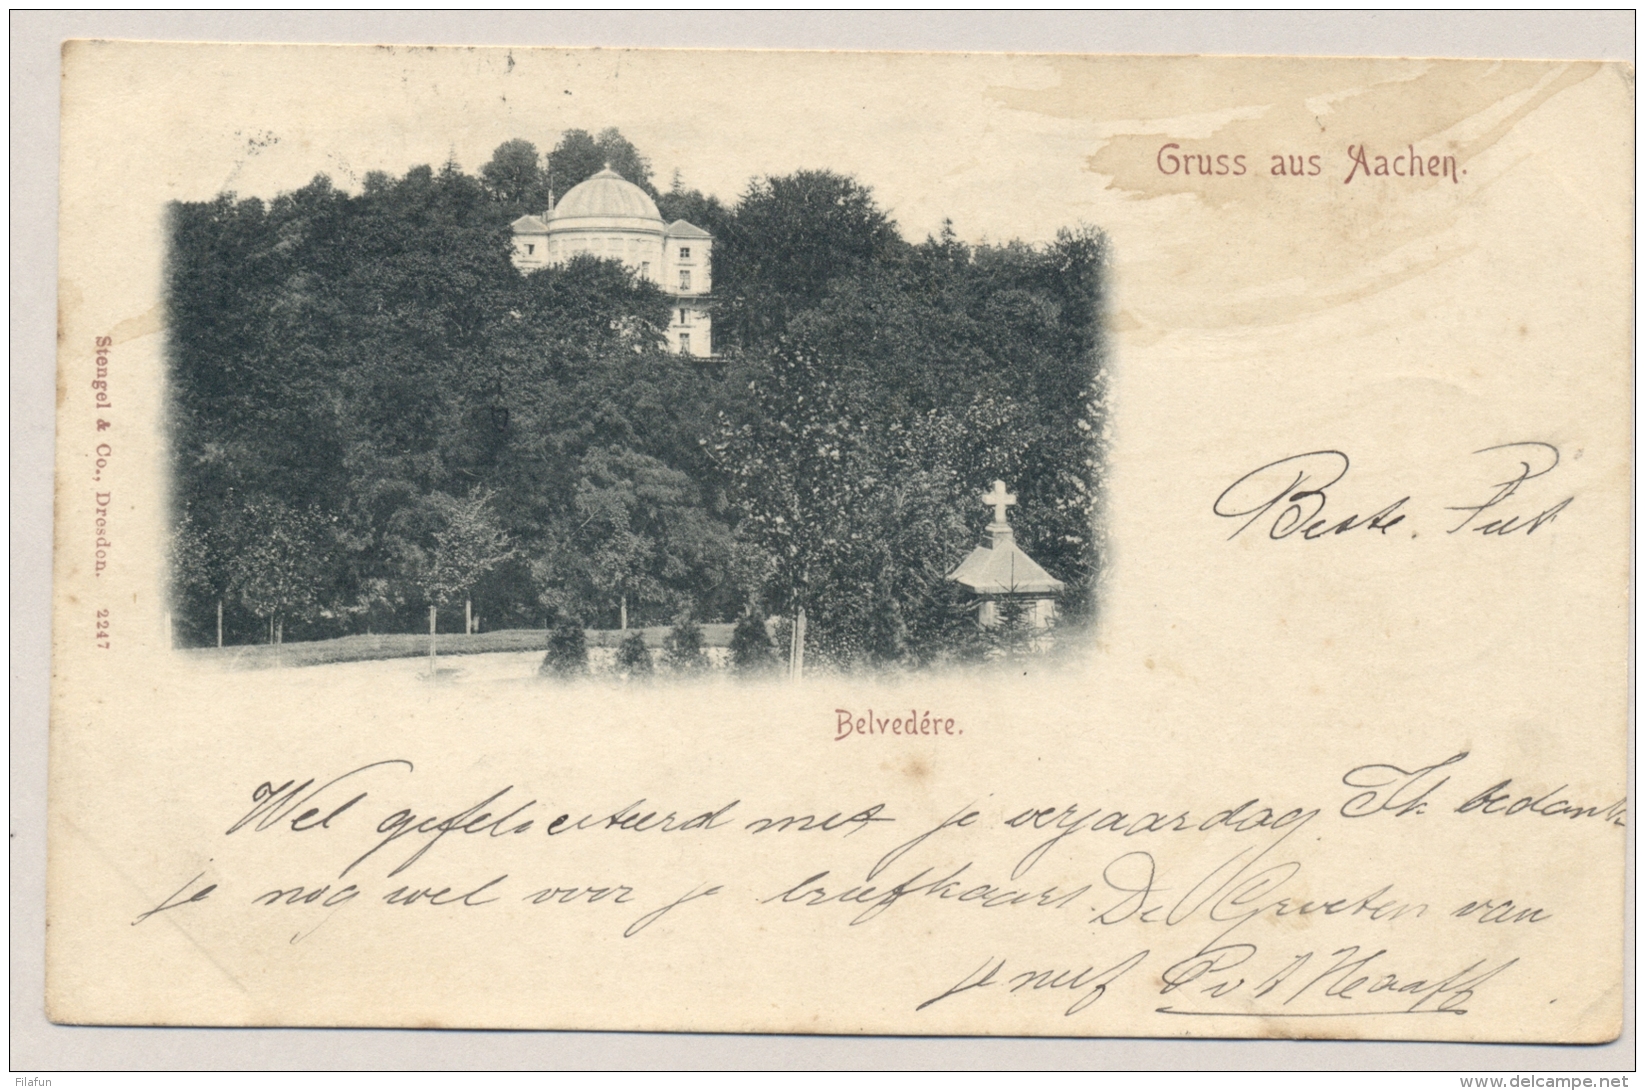 Gruss aus Aachen.
Stengel & Co., Dresden. 2247
Beste. Piet
Belvedére.
Wel gefeliciteerd met je verjaardag Ik bedank
je nog wel voor je briefkaart. De Groeten van
je neef P v d Haaff
Filafun
http://www.delcampe.net